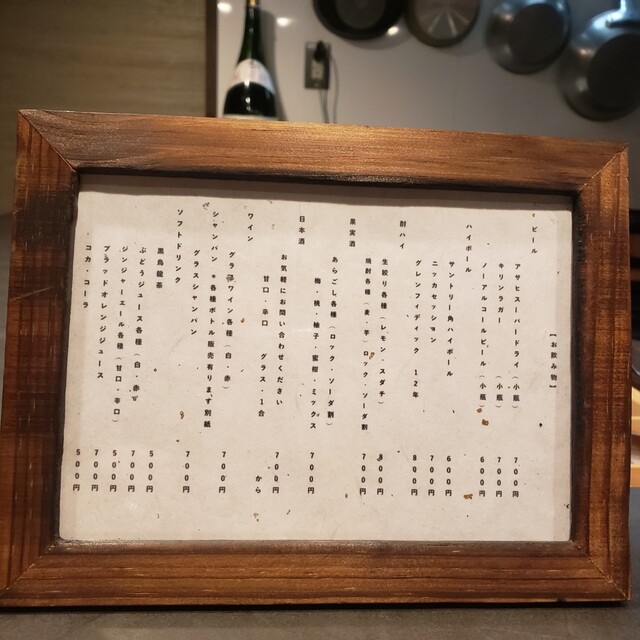 【お飲み物】
ビール
アサヒスーパードライ（小瓶） 700円
キリンラガー （小瓶） 700円
ノーアルコールビール（小瓶） 600円
ハイボール
サントリー角ハイボール 600円
ニッカセッション 700円
グレンフィディック 12年 800円
酎ハイ
生絞り各種（レモン・スダチ） 800円
焼酎各種（麦・芋）ロック・ソーダ割 700円
果実酒
あらごし各種（ロック・ソーダ割）
梅・桃・柚子・蜜柑・ミックス 700円
日本酒
お気軽にお問い合わせください
甘口・辛口 グラス・1合 700円 から
ワイン
グラスワイン各種（白・赤） 700円
シャンパン ＊各種ボトル販売有ります別紙
グラスシャンパン 700円
ソフトドリンク
黒烏龍茶 500円
ぶどうジュース各種（白・赤） 700円
ジンジャーエール各種（甘口・辛口） 500円
ブラッドオレンジジュース 700円
コカ・コーラ 500円